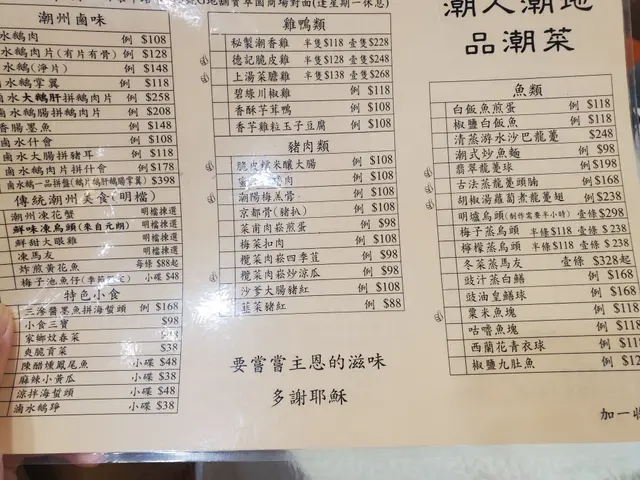 潮州鹵味
水鵝肉 例 $108
水鵝肉片(有片有骨) 例 $128
水鵝(淨片) 例 $148
水鵝掌翼 例 $118
水大鵝肝拼鵝肉片 例 $258
水鵝腸拼鵝肉片 例 $208
香腸墨魚 例 $148
水什會 例 $108
水大腸拼豬耳 例 $118
水鵝肉片拼什會 例 $178
鹵水鵝一品拼盤(鵝片鵝肝鵝腸掌翼) $398
傳統潮州美食(明檔)
潮州凍花蟹 明檔揀選
鮮味凍烏頭(來自元朗) 明檔揀選
鮮甜大眼雞 明檔揀選
凍馬友 明檔揀選
炸煎黃花魚 每條 $88起
梅子池魚仔 小碟 $48
特色小食
三滲醬墨魚拼海蜇頭 例 $168
小食三寶 $98
家鄉蚊春菜
爽脆貢菜 $38
陳醋燻鳳尾魚 小碟 $48
麻辣小黃瓜 小碟 $38
涼拌海蜇頭 小碟 $48
滷水鵝踭 小碟 $38
雞鴨類
秘製潮香雞 半隻$118 壹隻$228
德記脆皮雞 半隻$128 壹隻$248
上湯菜膽雞 半隻$138 壹隻$268
碧綠川椒雞 例 $118
香酥芋茸鴨 例 $108
香芋雞粒玉子豆腐 例 $108
豬肉類
脆皮糯米釀大腸 例 $108
肉 例 $108
潮陽梅羔骨 例 $108
京都骨(豬扒) 例 $108
菜甫肉崧煎蛋 例 $98
梅菜扣肉 例 $108
欖菜肉崧四季荳 例 $98
欖菜肉崧炒涼瓜 例 $98
沙爹大腸豬紅 例 $108
韮菜豬紅 例 $88
要嘗嘗主恩的滋味
多謝耶穌
潮人潮地
品潮菜
魚類
白飯魚煎蛋 例 $118
椒鹽白飯魚 例 $118
清蒸游水沙巴龍躉 $248
潮式炒魚麵 例 $98
翡翠龍躉球 例 $198
古法蒸龍躉頭腩 例 $168
胡椒湯蘿蔔煮龍躉翅 例$238
明爐烏頭(制作需要半小時) 壹條$298
梅子蒸烏頭 半條$118 壹條 $238
檸檬蒸烏頭 半條$118 壹條 $238
冬菜蒸馬友 壹條 $328起
豉汁蒸白鱔 例 $168
豉油皇鱔球 例 $168
粟米魚塊 例 $118
咕嚕魚塊 例
西蘭花青衣球 例
椒鹽九肚魚 例
加一